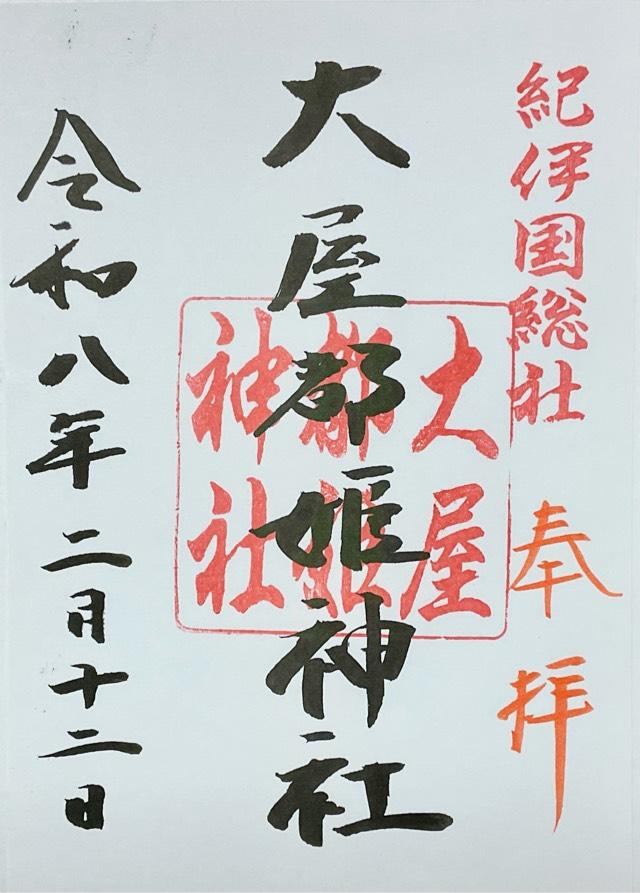 紀伊国総社
奉拝
大屋都姫神社
大屋
都姫
神社
令和八年二月十二日